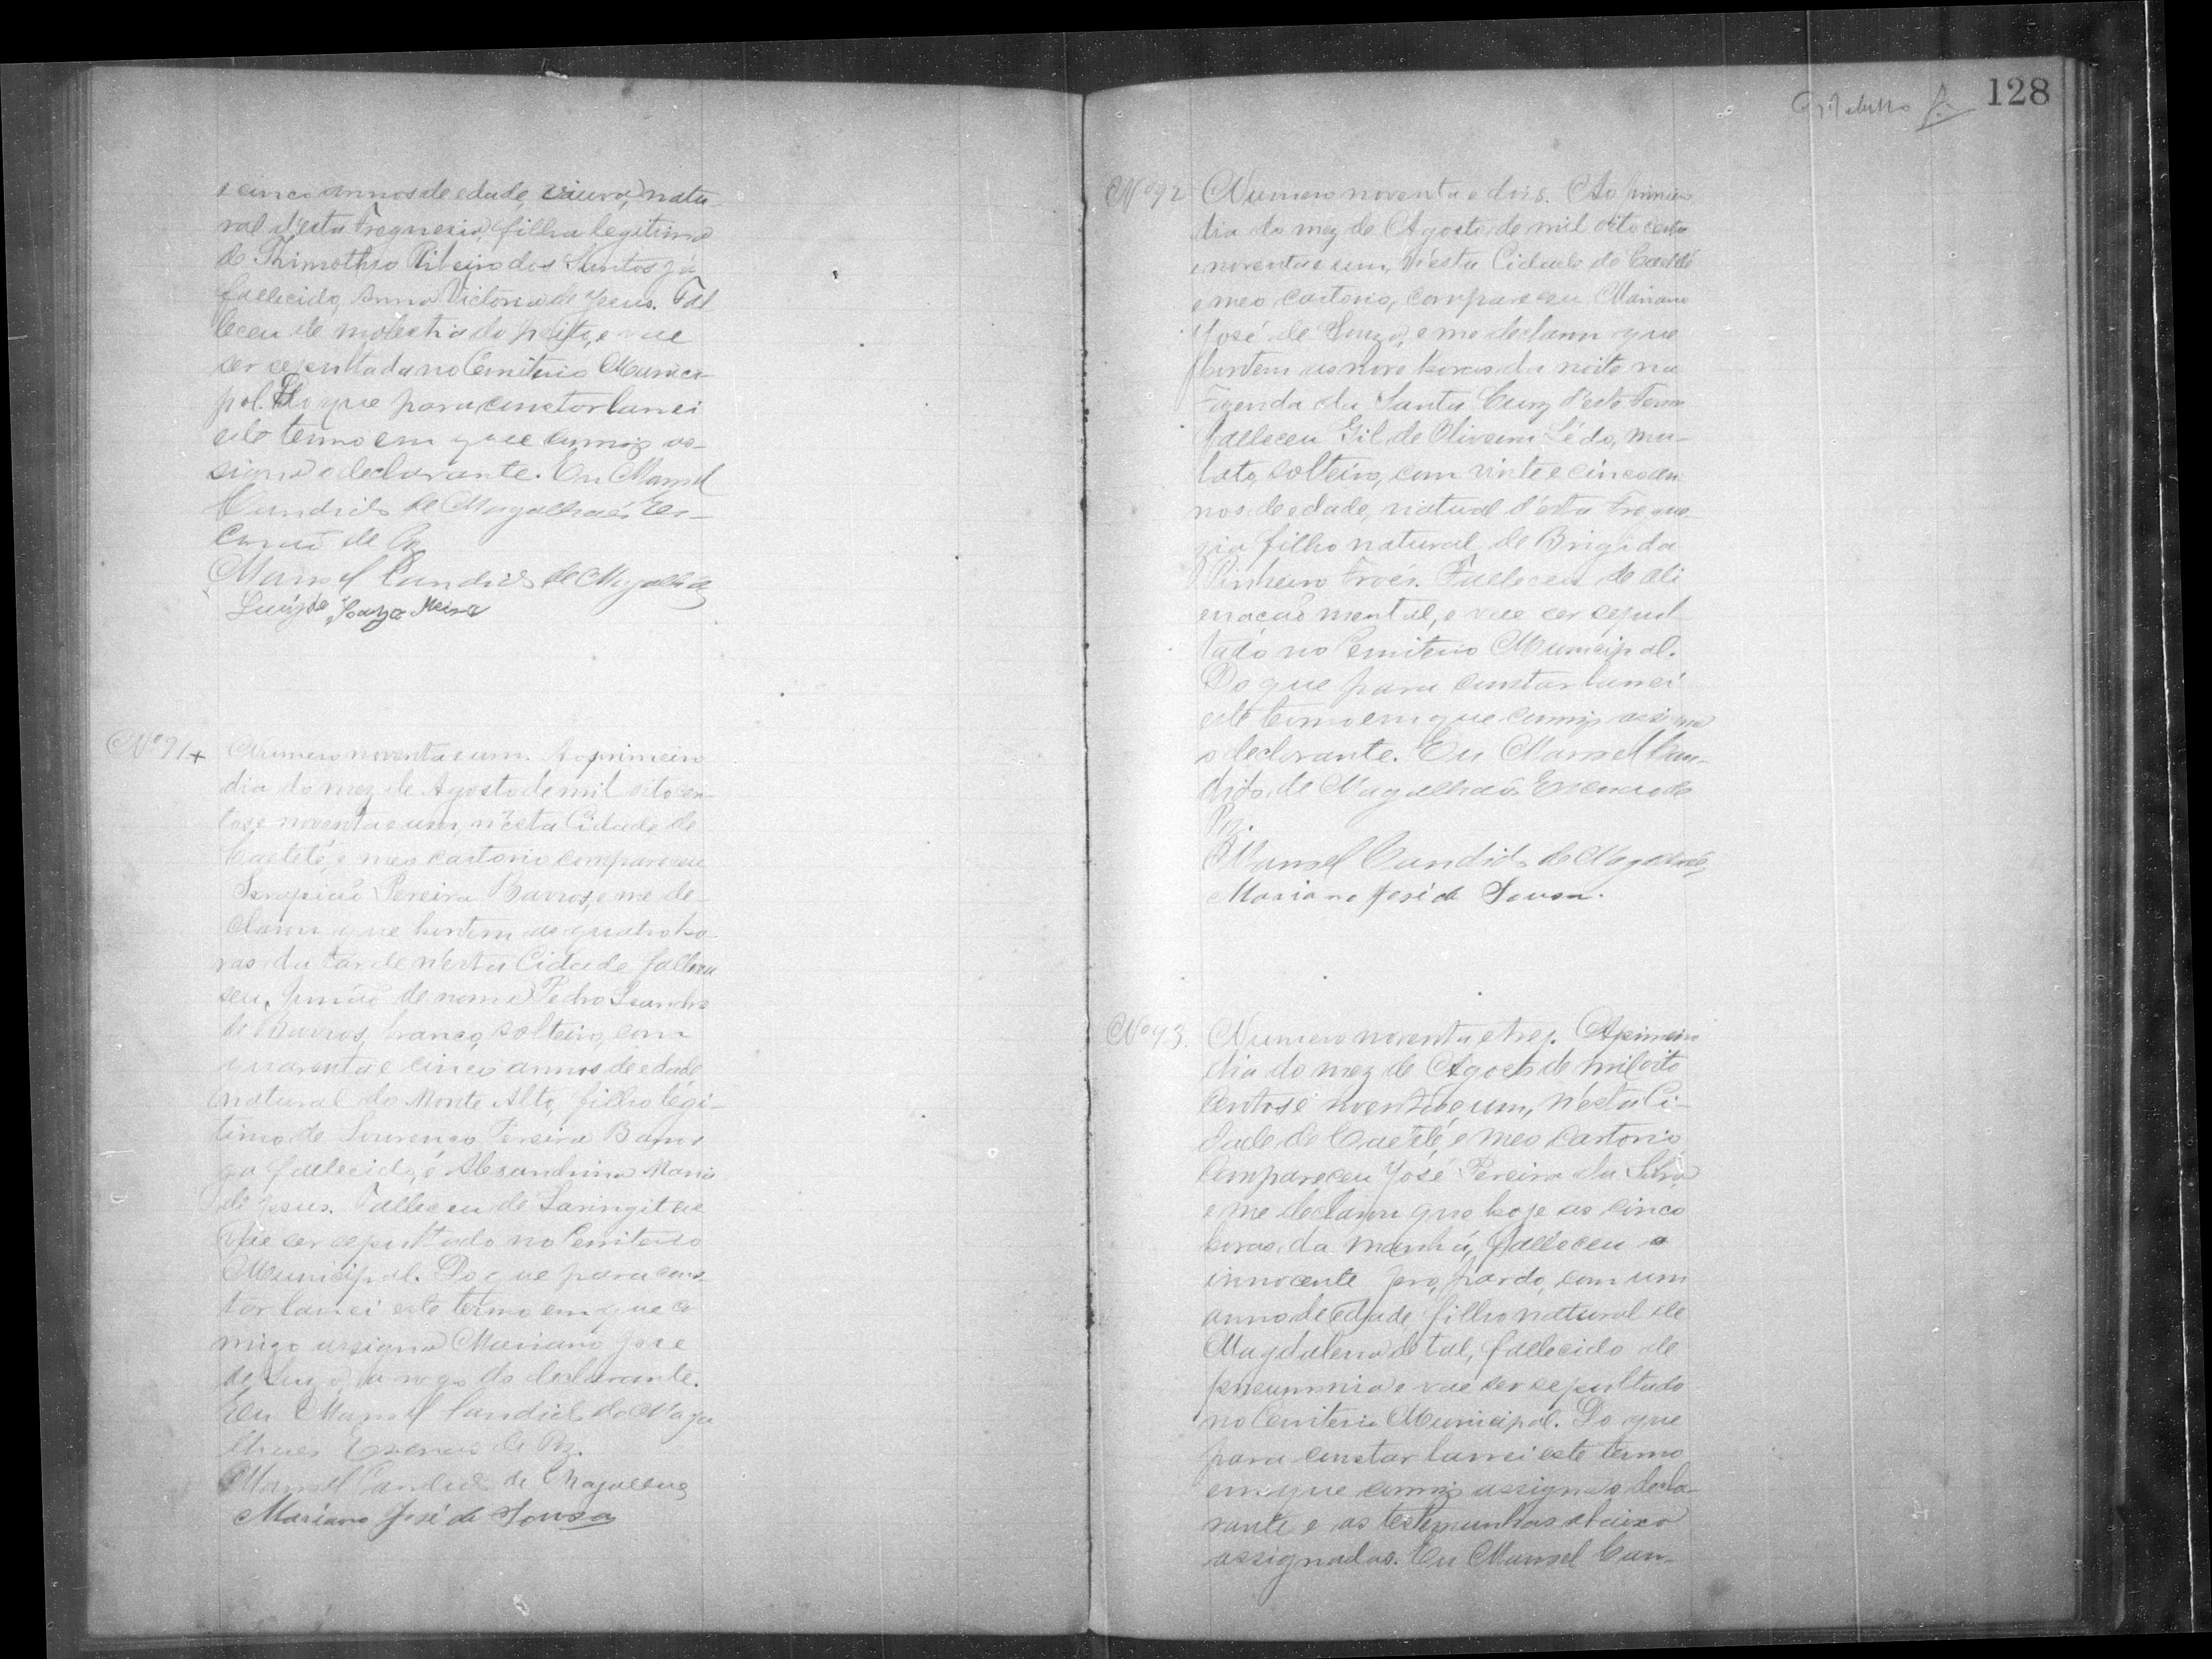 e cinco annos de edade, viuva, natu-
ral d'esta Freguesia, filha legitima
de Thimotheo Ribeiro dos Santos já
fallecido, Anna Victoria de Jesus. Fal
leceu de molestia do peito, e vae
ser sepultada no Cemiterio Munici-
pal. Do que para constar lavrei
este termo em que comigo as-
signa o declarante. Eu Manoel
Candido de Magalhães Es-
crivão de Paz
Manoel Candido de Magalhães
Luiz de Souza Meira
Nº 91+
Numero noventa e um. Ao primeiro
dia do mez de Agosto de mil oitocen-
tos e noventa e um, n'esta Cidade de
Caeteté, e meo cartorio compareceu
Serapião Pereira Barros, e me de-
clarou que hontem as quatro ho-
ras da tarde n'esta Cidade falleceu
seu irmão de nome Pedro Leandro
de Barros, branco, solteiro, com
quarenta e cinco annos de edade
natural do Monte Alto, filho legi-
timo de Lourenço Pereira Barros
ja fallecido, e Alesandrina Maria
de Jesus. Falleceu de Laringite e
vae ser sepultado no Cemiterio
Municipal. Do que para cons-
tar lavrei este termo em que co
migo assigna Mariano Jose
de Souza, a rogo do declarante.
Eu Manoel Candido de Maga
lhães Escrivão de Paz.
Manoel Candido de Magalhães
Mariano José de Sousa
128
Nº 92
Numero noventa e dois. Ao primeiro
dia do mez de Agosto de mil oito centos
e noventa e um, n'esta Cidade de Caeteté
e meo cartorio, compareceu Mariano
José de Souza, e me declarou que
hontem as nove horas da noite na
Fazenda da Santa Cruz d'este Termo
falleceu Gil de Oliveira Lédo, mu-
lato, solteiro, com vinte e cinco an
nos de edade, natural d'esta Fregue-
zia filho natural de Brigida
Pinheiro Froés. Falleceu de ali
enação mental, e vae ser sepul
tado no Cemiterio Municipal.
Do que para constar lavrei
este termo em que comigo assigna
o declarante. Eu Manoel Can-
dido de Magalhães Escrivão de
Paz.
Manoel Candido de Magalhães
Mariano José de Sousa.
Nº 93.
Numero noventa e trez. Ao primeiro
dia do mez de Agosto de mil oito
centos e noventa e um, n'esta Ci-
dade de Caeteté, e meo cartorio
compareceu José Pereira da Silva
e me declarou que hoje as cinco
horas da manhã, falleceu o
innocente pardo, com um
anno de edade, filho natural de
Magdalena de tal, fallecido de
pneumonia e vae ser sepultado
no Cemiterio Municipal. Do que
para constar lavrei este termo
em que comigo assigna o decla-
rante e as testemunhas abaixo
assignadas. Eu Manoel Can-